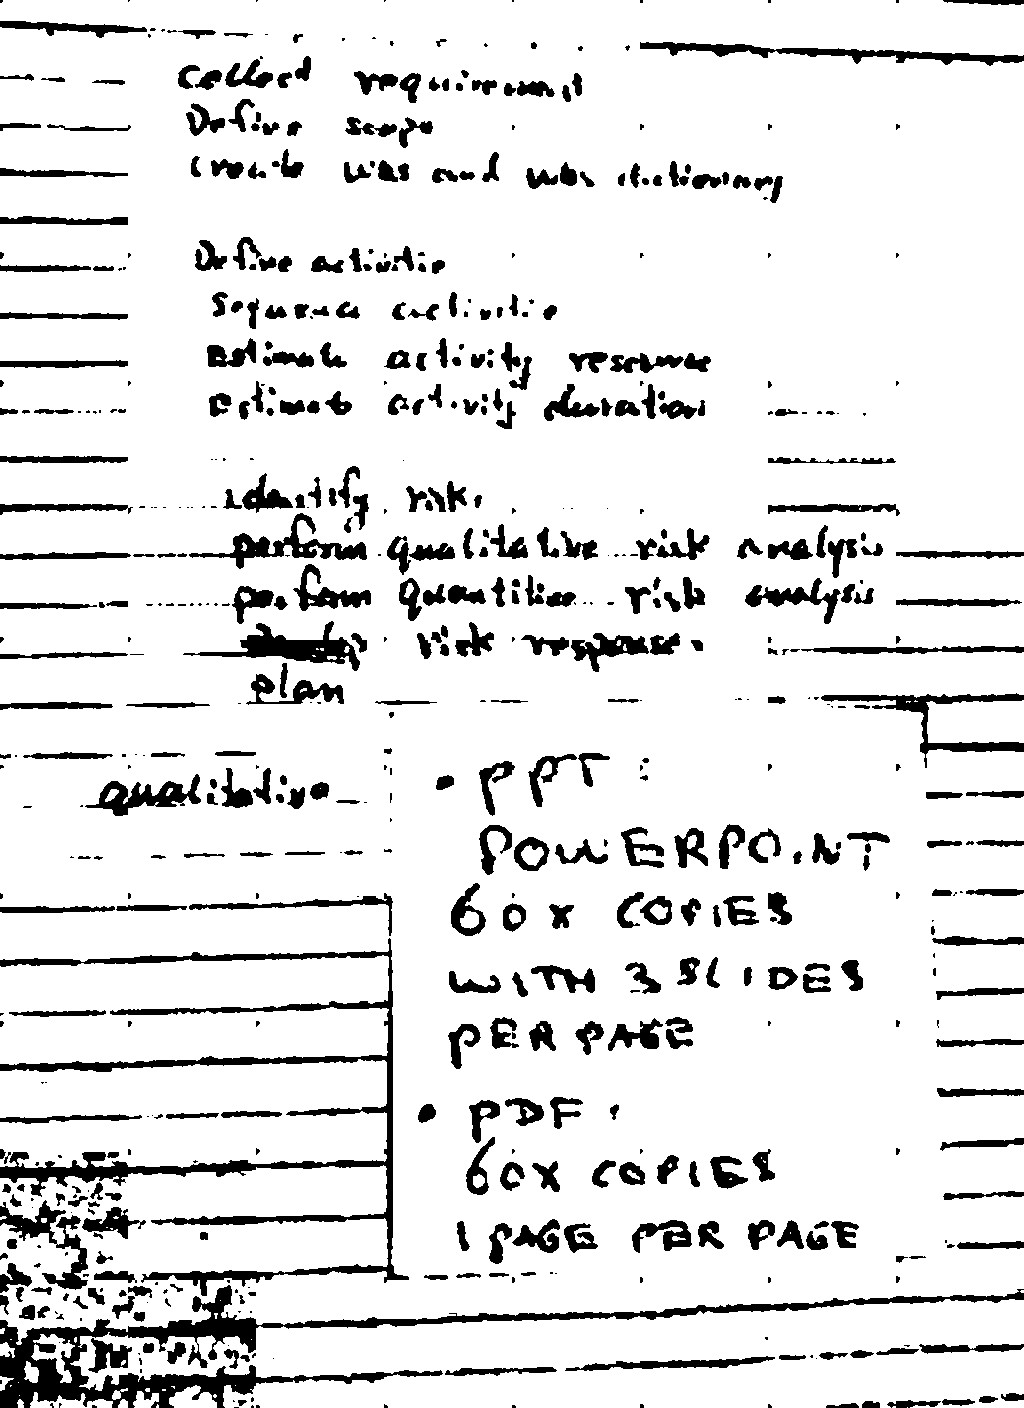 Collect requirement
Define scope
Create WBS and WBS dictionary
Define activitie
Sequence activitie
Estimate activity resource
Estimate activity duration
Identify risk.
perform qualitative risk analysis
perform quantitive risk analysis
risk response.
plan
qualitative
• PPT :
POWERPOINT
60x COPIES
WITH 3 SLIDES
PER PAGE
• PDF :
60x COPIES
1 PAGE PER PAGE